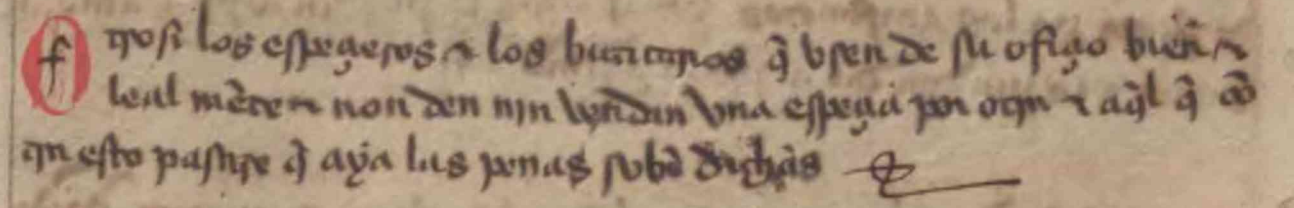 Otrosi los espeçieros ⁊ los buticarios q̃ vsen de su ofiçio bien ⁊
leal mẽte ⁊ non den nin vendan vna espeçia por otra ⁊ aq̃l q̃ cõ
tra esto pasare q̃ aya las penas sobẽ dichas